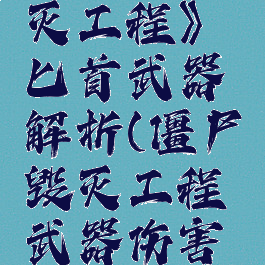 灭工程》
匕首武器
解析(僵尸
毁灭工程
武器伤害